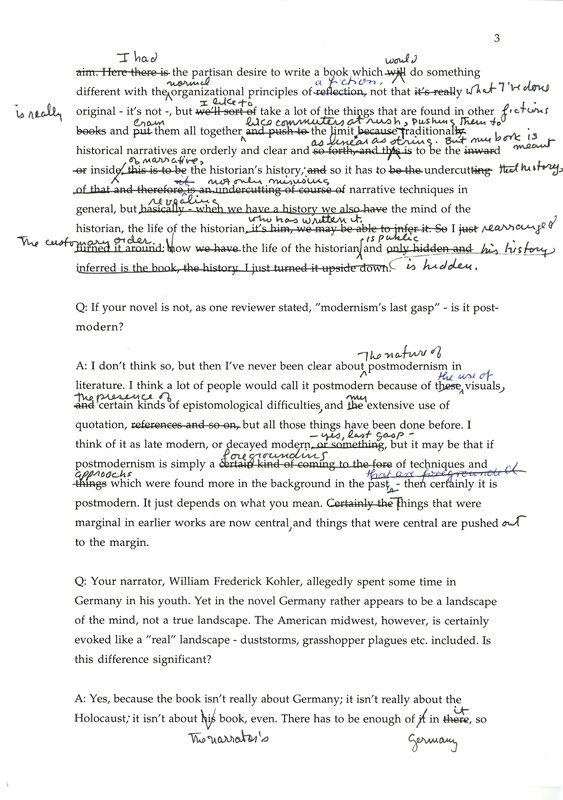 3
I had would
aim. Here there is the partisan desire to write a book which will do something
normal a fiction,
different with the organizational principles of reflection, not that it's really what I've done
is really I like to
original - it's not -, but we'll sort of take a lot of things that are found in other fictions
cram like commuters at rush, pushing them to
books and put them all together and push to the limit because Traditionally
as linear as string. But my book is
historical narratives are orderly and clear and so forth, and this is to be the inward meant
of narrative,
or inside, this is to be the historian's history, and so it has to be the undercutting that history,
not only misusing
of that and therefore is an undercutting of course of narrative techniques in
revealing
general, but basically - when we have a history we also have the mind of the
who has written it.
historian, the life of the historian, it's him, we may be able to infer it. So I just rearranged
The customary order. is public
turned it around: now we have the life of the historian, and only hidden and his history
inferred is the book, the history. I just turned it upside down. is hidden.
Q: If your novel is not, as one reviewer stated, "modernism's last gasp" - is it post-
modern?
The nature of
A: I don't think so, but then I've never been clear about postmodernism in
the use of
literature. I think a lot of people would call it postmodern because of these visuals,
the presence of my
and certain kinds of epistomological difficulties, and the extensive use of
quotation, references and so on, but all those things have been done before. I
- yes, last gasp -
think of it as late modern, or decayed modern, or something, but it may be that if
foregrounding
postmodernism is simply a certain kind of coming to the fore of techniques and
approachs that are foregrounded
things which were found more in the background in the past - then certainly it is
postmodern. It just depends on what you mean. Certainly the Things that were
marginal in earlier works are now central, and things that were central are pushed out
to the margin.
Q: Your narrator, William Frederick Kohler, allegedly spent some time in
Germany in his youth. Yet in the novel Germany rather appears to be a landscape
of the mind, not a true landscape. The American midwest, however, is certainly
evoked like a "real" landscape - duststorms, grasshopper plagues etc. included. Is
this difference significant?
A: Yes, because the book isn't really about Germany; it isn't really about the
it
Holocaust; it isn't about his book, even. There has to be enough of it in there, so
The narrator's Germany